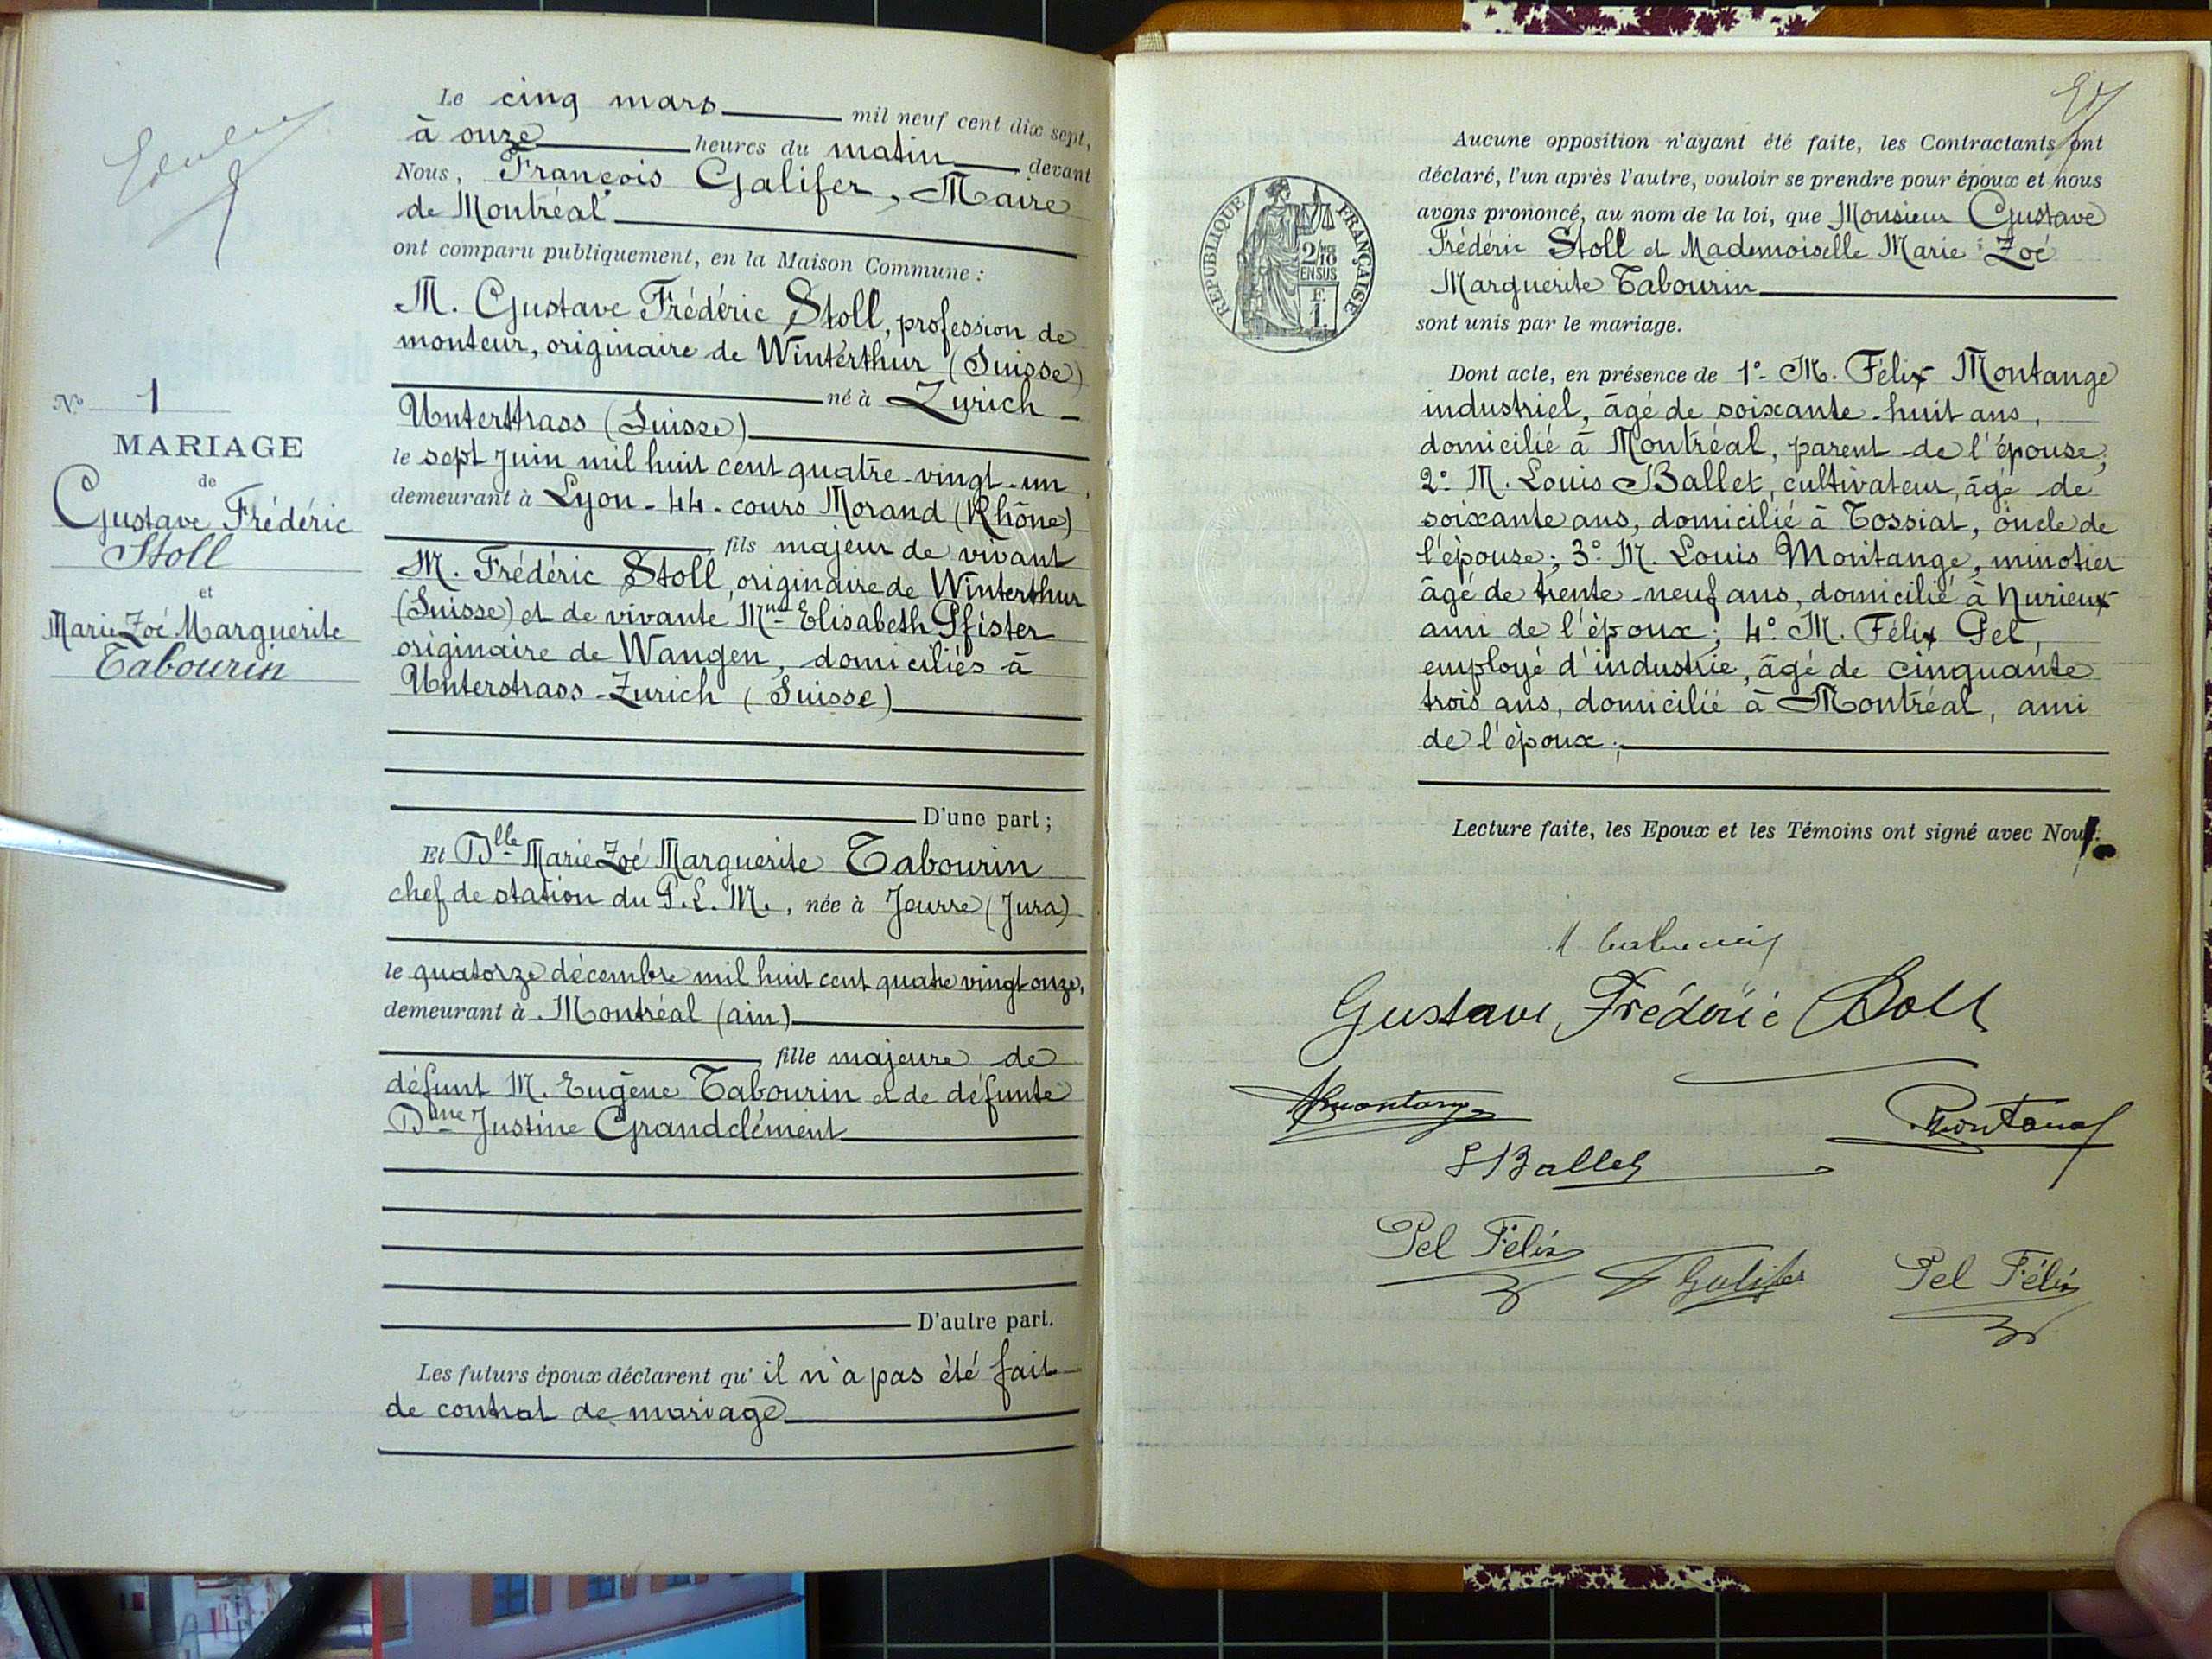 Le cinq mars mil neuf cent dix sept,
à onze heures du matin devant
Nous, François Galifer, Maire
de Montréal
ont comparu publiquement, en la Maison Commune :
M. Gustave Frédéric Stoll, profession de
monteur, originaire de Winterthur (Suisse)
né à Zurich -
Unterthass (Suisse)
le sept Juin mil huit cent quatre-vingt-un,
demeurant à Lyon - 44 - cours Morand (Rhône)
fils majeur de vivant
M. Frédéric Stoll, originaire de Winterthur
(Suisse) et de vivante Mme Elisabeth Pfister
originaire de Wangen, domiciliés à
Unterstrass-Zurich (Suisse)
D'une part ;
Et Dlle Marie Zoé Marguerite Tabourin
chef de station du P.L.M., née à Jeurre (Jura)
le quatorze décembre mil huit cent quatre vingt onze,
demeurant à Montréal (ain)
fille majeure de
défunt M. Eugène Tabourin et de défunte
Dme Justine Grandclément
D'autre part.
Les futurs époux déclarent qu'il n'a pas été fait
de contrat de mariage
No 1
MARIAGE
de
Gustave Frédéric
Stoll
et
Marie Zoé Marguerite
Tabourin
REPUBLIQUE FRANÇAISE
2/10
EN SUS
F.
1.
Aucune opposition n'ayant été faite, les Contractants ont
déclaré, l'un après l'autre, vouloir se prendre pour époux et nous
avons prononcé, au nom de la loi, que Monsieur Gustave
Frédéric Stoll et Mademoiselle Marie Zoé
Marguerite Tabourin
sont unis par le mariage.
Dont acte, en présence de 1°- M. Félix Montange
industriel, âgé de soixante-huit ans,
domicilié à Montréal, parent de l'épouse;
2° M. Louis Ballet, cultivateur, âgé de
soixante ans, domicilié à Tossiat, oncle de
l'épouse; 3° M. Louis Montange, minotier
âgé de trente-neuf ans, domicilié à Nurieux
ami de l'époux; 4° M. Félix Pel,
employé d'industrie, âgé de cinquante
trois ans, domicilié à Montréal, ami
de l'époux;
Lecture faite, les Epoux et les Témoins ont signé avec Nous.
Gustave Frédéric Stoll
Montange
L Ballet
Pel Félix
F Galifer
Pel Félix